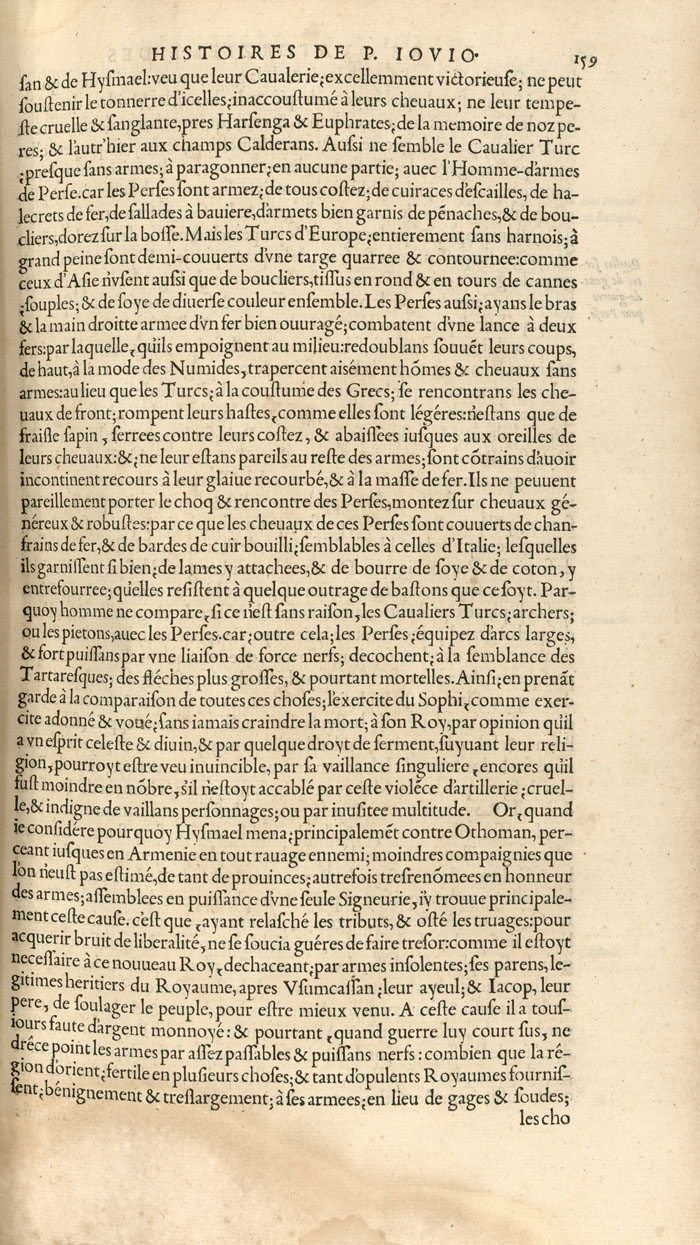 HISTOIRES DE P. IOVIO. 159
ſan & de Hyſmael:veu que leur Caualerie;excellemment victorieuſe; ne peut
ſouſtenir le tonnerre d'icelles;inaccouſtumé à leurs cheuaux; ne leur tempe-
ſte cruelle & ſanglante,pres Harſenga & Euphrates;de la memoire de noz pe-
res; & l'autr'hier aux champs Calderans. Auſsi ne ſemble le Caualier Turc
;preſque ſans armes;à paragonner;en aucune partie; auec l'Homme-d'armes
de Perſe.car les Perſes ſont armez;de tous coſtez;de cuiraces d'eſcailles, de ha-
lecrets de fer,de ſallades à bauiere,d'armets bien garnis de pénaches,& de bou-
cliers,dorez ſur la boſſe. Mais les Turcs d'Europe;entierement ſans harnois;à
grand peine ſont demi-couuerts d'vne targe quarree & contournee:comme
ceux d'Aſie n'vſent auſsi que de boucliers,tiſſus en rond & en tours de cannes
;ſouples;& de ſoye de diuerſe couleur enſemble. Les Perſes auſsi;ayans le bras
& la main droitte armee d'vn fer bien ouuragé;combatent d'vne lance à deux
fers:par laquelle,qu'ils empoignent au milieu:redoublans ſouuẽt leurs coups,
de haut,à la mode des Numides,trapercent aisément hõmes & cheuaux ſans
armes:au lieu que les Turcs;à la couſtume des Grecs; ſe rencontrans les che-
uaux de front;rompent leurs haſtes,comme elles ſont légéres:n'eſtans que de
fraiſle ſapin , ferrees contre leurs coſtez , & abaiſſees iuſques aux oreilles de
leurs cheuaux:&;ne leur eſtans pareils au reſte des armes;ſont cõtrains d'auoir
incontinent recours à leur glaiue recourbé,& à la maſſe de fer. Ils ne peuuent
pareillement porter le choq & rencontre des Perſes,montez ſur cheuaux gé-
néreux & robuſtes:par ce que les cheuaux de ces Perſes ſont couuerts de chan-
frains de fer,& de bardes de cuir bouilli;ſemblables à celles d'Italie; leſquelles
ils garniſſent ſi bien;de lames y attachees,& de bourre de ſoye & de coton, y
entrefourree;qu'elles reſiſtent à quelque outrage de baſtons que ce ſoyt. Par-
quoy homme ne compare,ſi ce n'eſt ſans raiſon,les Caualiers Turcs;archers;
ou les pietons,auec les Perſes.car;outre cela;les Perſes ;équipez d'arcs larges,
& fort puiſſans par vne liaiſon de force nerfs; decochent;à la ſemblance des
Tartareſques; des fléches plus groſſes, & pourtant mortelles. Ainſi;en prenãt
garde à la comparaiſon de toutes ces choſes;l'exercite du Sophi,comme exer-
cite adonné & voué;ſans iamais craindre la mort;à ſon Roy,par opinion qu'il
a vn eſprit celeſte & diuin,& par quelque droyt de ſerment,ſuyuant leur reli-
gion,pourroyt eſtre veu inuincible, par ſa vaillance ſinguliere ,encores qu'il
fuſt moindre en nõbre,s'il n'eſtoyt accablé par ceſte violẽce d'artillerie ;cruel-
le,& indigne de vaillans perſonnages;ou par inuſitee multitude. Or,quand
ie conſidére pourquoy Hyſmael mena;principalemẽt contre Othoman, per-
ceant iuſques en Armenie en tout rauage ennemi;moindres compaignies que
l'on n'euſt pas eſtimé,de tant de prouinces;autrefois treſrenõmees en honneur
des armes;aſſemblees en puiſſance d'vne ſeule Signeurie, i'y trouue principale-
ment ceſte cauſe. c'eſt que ,ayant relaſché les tributs,& oſté les truages:pour
acquerir bruit de liberalité,ne ſe ſoucia guéres de faire treſor:comme il eſtoyt
neceſſaire à ce nouueau Roy,dechaceant;par armes inſolentes;ſes parens,le-
gitimes heritiers du Royaume, apres Vſumcaſſan ;leur ayeul;& Iacop, leur
pere, de ſoulager le peuple, pour eſtre mieux venu. A ceſte cauſe il a touſ-
iours faute d'argent monnoyé: & pourtant ,quand guerre luy court ſus, ne
dréce point les armes par aſſez paſſables & puiſſans nerfs : combien que la ré-
gion d'orient;fertile en pluſieurs choſes;& tant d'opulents Royaumes fourniſ-
ſent;bénignement & treſlargement;à ſes armees;en lieu de gages & ſoudes;
les cho